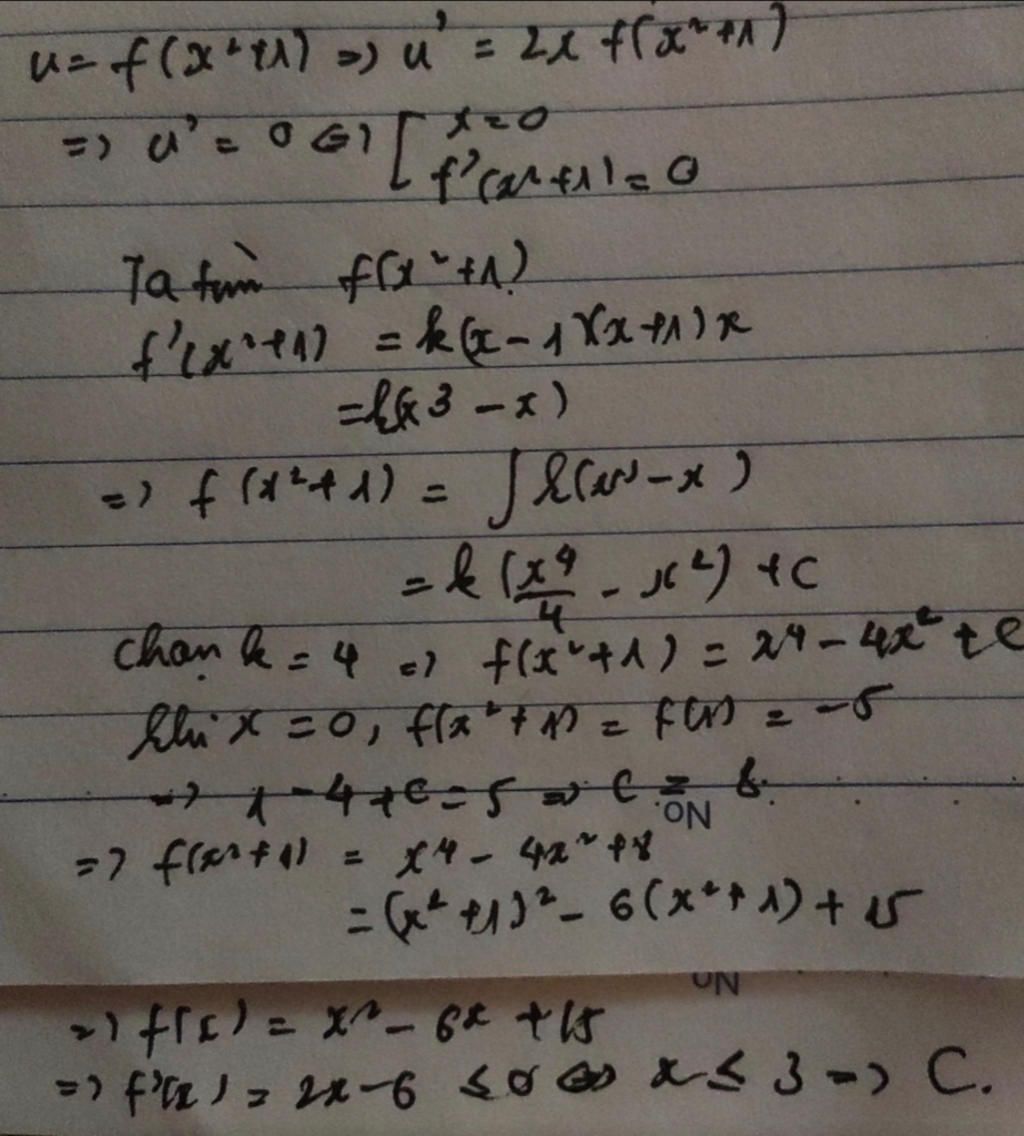 u = f(x²+1) => u' = 2x f(x²+1)
=> u' = 0 <=> [ x = 0
f'(x²+1) = 0
Ta tìm f(x²+1)
f'(x²+1) = k(x-1)(x+1)x
= k(x3 - x)
=> f(x²+1) = ∫ k(x³ - x)
= k(x4/4 - x²) + C
Chọn k = 4 => f(x²+1) = x4 - 4x² + C
Khi x = 0, f(x²+1) = f(1) = -5
=> 1 - 4 + C = 5 => C = 8.
NO
=> f(x²+1) = x4 - 4x² + 8
= (x²+1)² - 6(x²+1) + 15
NO
=> f(x) = x² - 6x + 15
=> f'(x) = 2x - 6 ≤ 0 <=> x ≤ 3 => C.